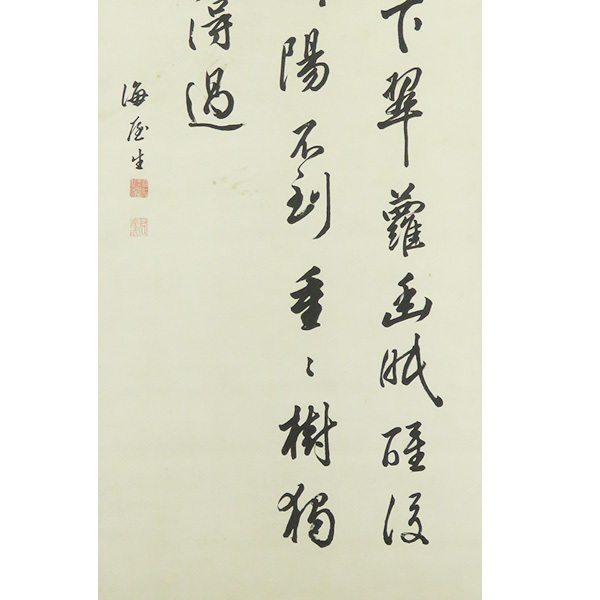 下翠蘿幽眠醒後
陽不到重〻樹獨
得過
海屋生